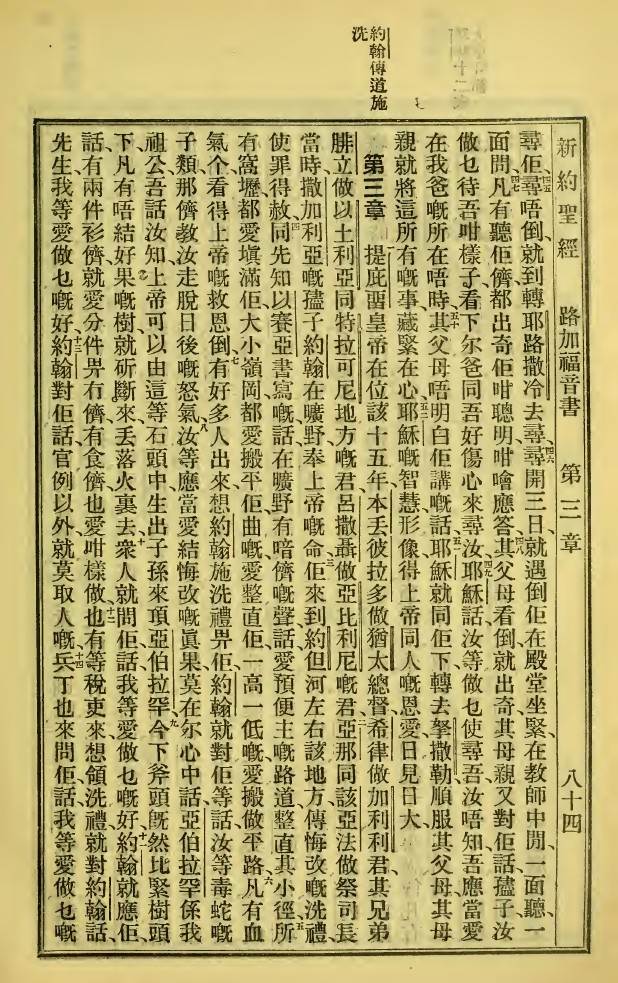 約翰傳道施
洗
新約聖經 路加福音書 第三章 八十四
尋佢、尋唔倒、就到轉耶路撒冷去尋、尋開三日、就遇倒佢在殿堂坐緊在教師中間、一面聽、一
面問、凡有聽佢儕、都出奇佢咁聰明咁噲應答、其父母看倒就出奇、其母親又對佢話、孻子、汝
做乜待吾咁樣子、看下尔爸同吾好傷心來尋汝、耶穌話、汝等做乜使尋吾、汝唔知吾應當愛
在我爸嘅所在唔時、其父母唔明白佢講嘅話、耶穌就同佢下轉去拏撒勒、順服其父母、其母
親就將這所有嘅事藏緊在心、耶穌嘅智慧形像、得上帝同人嘅恩愛、日見日大、
第三章 提庇哩皇帝在位該十五年、本丟彼拉多做猶太總督、希律做加利利君、其兄弟
腓立做以土利亞同特拉可尼地方嘅君、呂撒聶做亞比利尼嘅君、亞那同該亞法做祭司長
當時、撒加利亞嘅孻子約翰在曠野奉上帝嘅命、佢來到約但河左右該地方、傳悔改嘅洗禮、
使罪得赦、同先知以賽亞書寫嘅話、在曠野有喑儕嘅聲話、愛預便主嘅路道、整直其小徑、所
有窩壢都愛塡滿佢、大小嶺岡都愛搬平佢、曲嘅愛整直佢、一高一低嘅愛搬做平路、凡有血
氣个、看得上帝嘅救恩倒、有好多人出來想約翰施洗禮畀佢、約翰就對佢等話、汝等毒蛇嘅
子類、那儕教汝走脫日後嘅怒氣、汝等應當愛結悔改嘅眞果、莫在尔心中話、亞伯拉罕係我
祖公、吾話汝知、上帝可以由這等石頭中生出子孫來頂亞伯拉罕、今下斧頭旣然比緊樹頭
下、凡有唔結好果嘅樹、就斫斷來、丟落火裏去、衆人就問佢話、我等愛做乜嘅好、約翰就應佢
話、有兩件衫儕、就愛分件畀冇儕、有食儕也愛咁樣做、也有等稅吏來想領洗禮、就對約翰話、
先生、我等愛做乜嘅好、約翰對佢話、官例以外、就莫取人嘅、兵丁也來問佢、話、我等愛做乜嘅